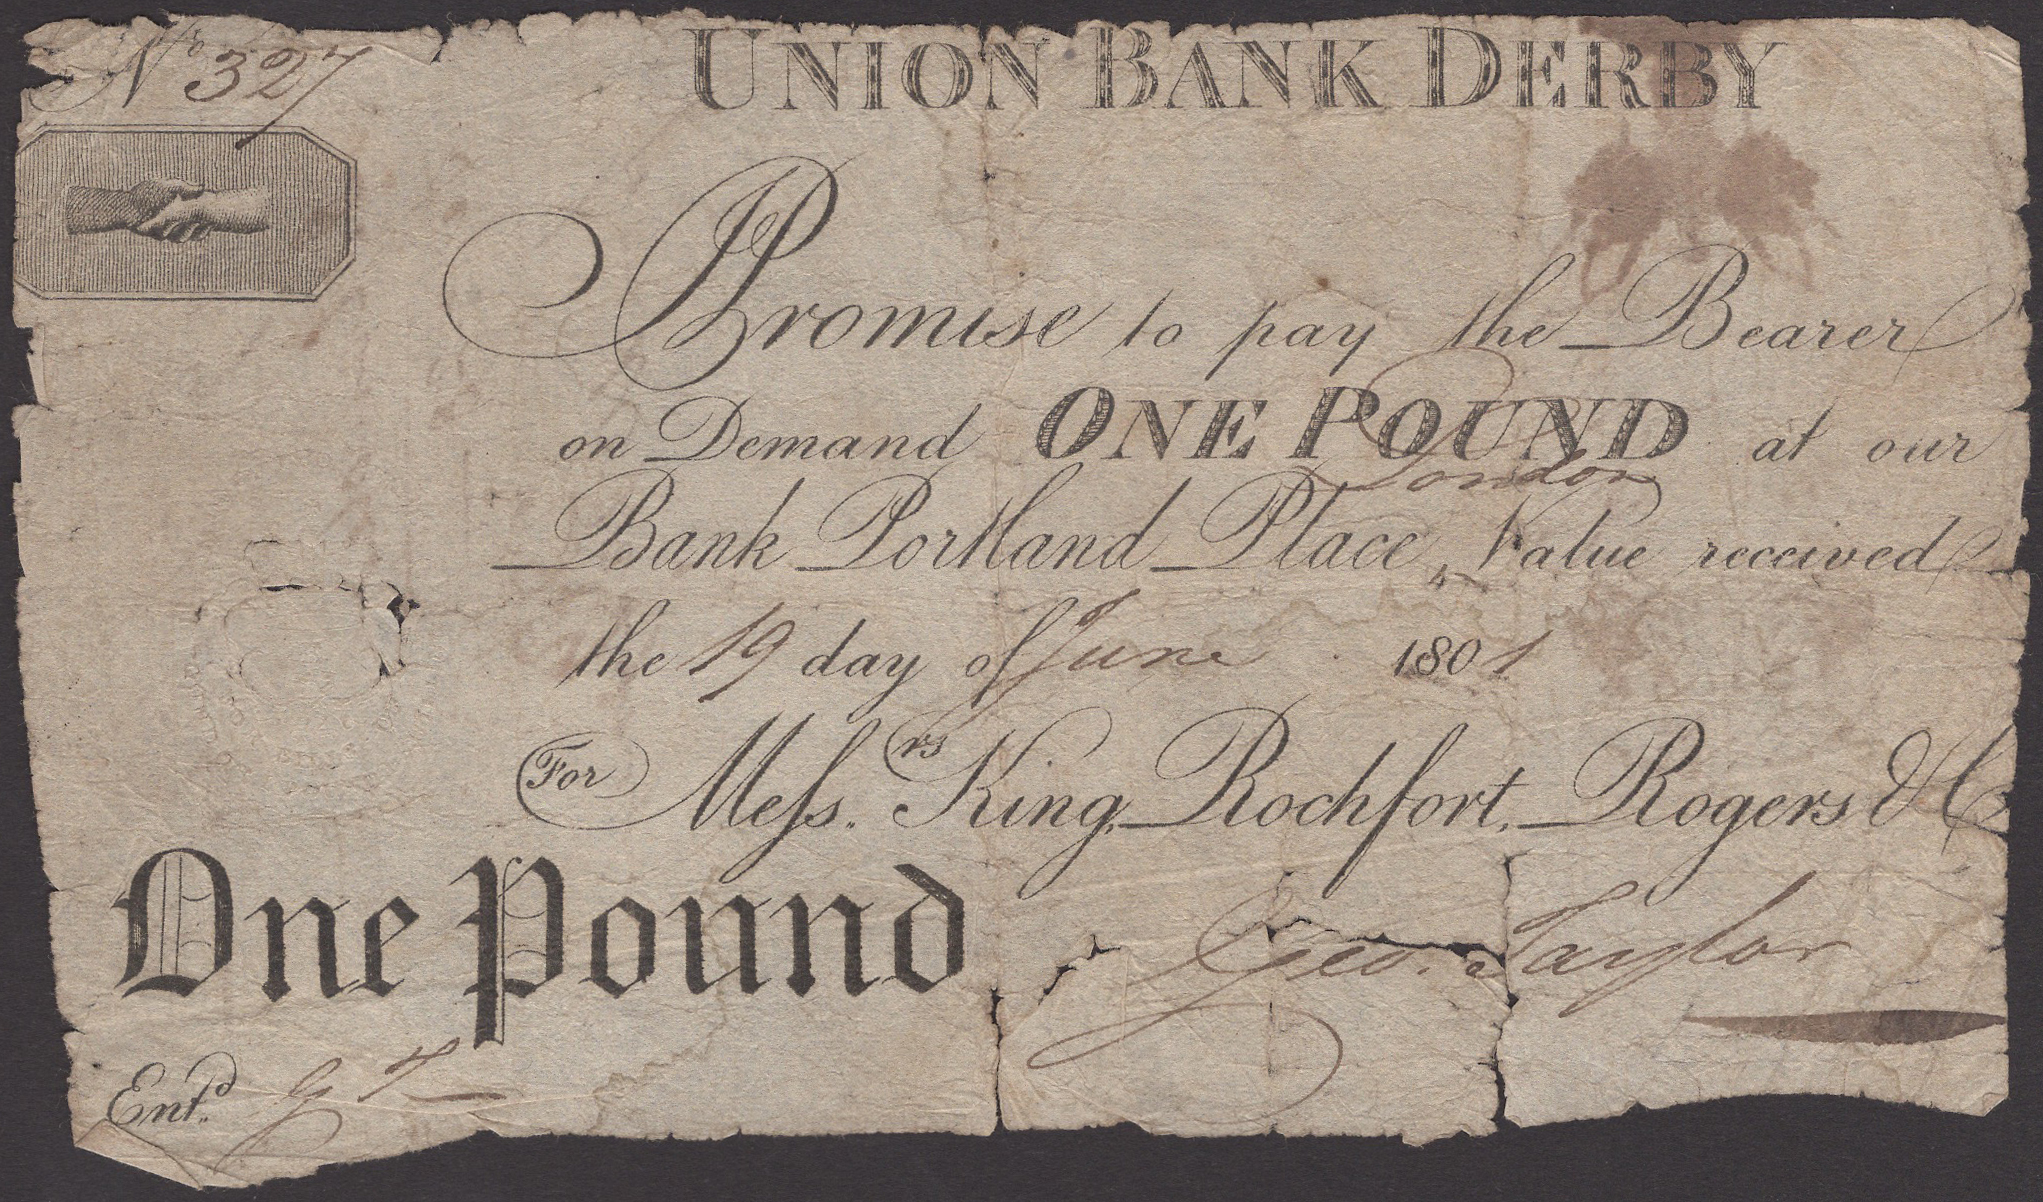 No 327
UNION BANK DERBY
Promise to pay the Bearer
on Demand ONE POUND at our
London
Bank Portland Place, Value received
the 19 day of June 1801
For Messrs. King, Rochfort, Rogers & Co
One Pound
Geo. Taylor
Entd. G T